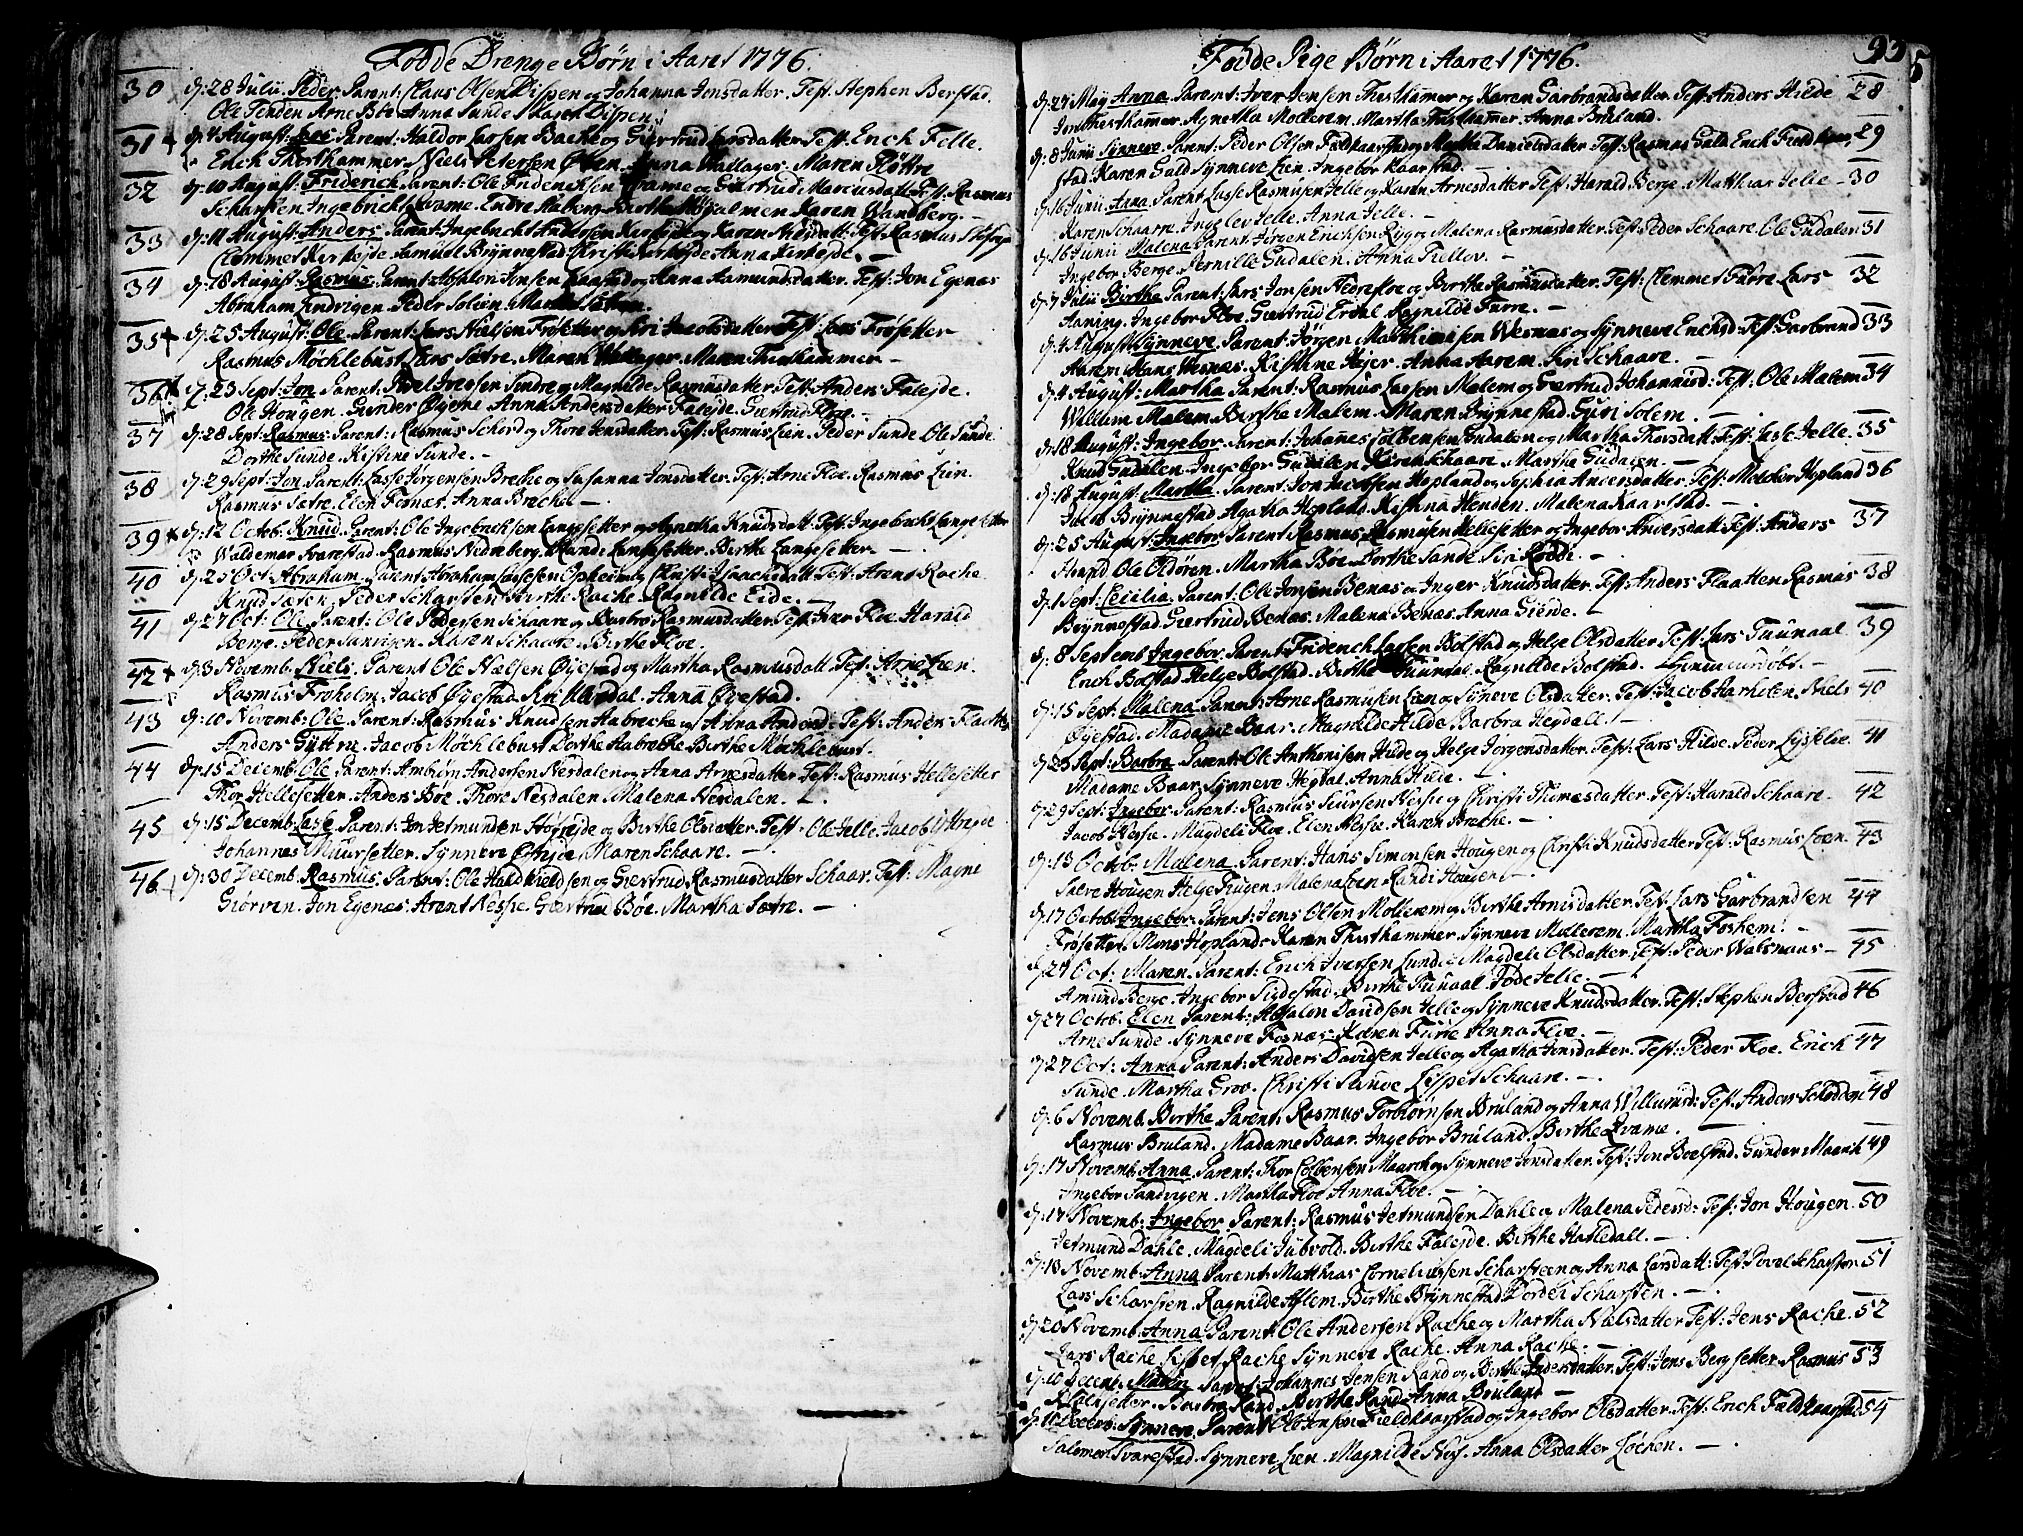 Fødde Drenge Børn i Aaret 1776.
30 d: 28 Julii. Peder Parent: Claus Olsen Dispen og Johanna Jonsdatter. Test: Stephen Berstad.
Ole Tenden Arne Böe Anna Sunde Dispen.
31 d: 4 August: Parent: Haldor Larsen Bache og Giertrud Larsdatter Test: Erich Felle.
Erich Thorthammer. Niels Petersen Anna Maren Fløttre
32 d: 10 August: Friderich Parent: Ole Friderichsen Qvame og Giertrud Marcusdatter T: Rasmus
Scharsten Ingebricht Qvame. Endre Birthe Karen Wandberg. —
33 d: 11 August: Anders Parent: Ingebricht Andersen Kirkejde og Karen Nilsdatt: Test: Rasmus
Clemmet Kirkejde Samuel Brynnestad Christi Kirkejde Anna Kirkejde. —
34 d: 18 August: Rasmus Parent: Absalon Jonsen og Anna Aamundsdatter. Test: Jon Egenæs
Abraham Endrigen. Peder Solem.
35 d: 25 August: Ole. Parent: Lars Nielsen Frøsetter og Siri Jacobsdatter Test: Jens Frøsetter
Rasmus Møchlebust Lars Sætre. Maren Maren Thisthammer —
36 d: 23 Sept: Jon Parent: Poul Iversen Sindre og Magnilde Rasmusdatter Test: Anders Falejde.
Ole Hougen. Gunder Øyene Anna Andersdatter Falejde. Giertrud Floe.
37 d: 28 Sept: Rasmus Parent: Rasmus Schord og Thore Jensdatter. Test: Rasmus Lien. Peder Sunde Ole Sunde.
Dorthe Sunde. Kistine Sunde. —
38 d: 29 Sept: Jon Parent: Lasse Jørgensen Breche og Susanna Jonsdatter. Test: Arne Floe. Rasmus Lien.
Rasmus Sætre. Elen Fosnæs. Anna Breche. —
39 d: 12 Octob: Knud. Parent: Ole Ingebrichsen Langesetter og Agnetha Knudsdatt: Test: Ingebricht Langesetter
Waldemar Svarestad. Rasmus Nidreberg. Rande Langesetter. Birthe Langesetter. —
40 d: 25 Oct: Abraham. Parent: Abraham Lassesen Opheim og Christi Isaachsdatt: Test: Arent Rache
Knud Særen. Peder Scharsten Birthe Rache Ragnilde Eide. —
41 d: 27 Oct: Ole Parent: Ole Pedersen Schaare og Barbro Rasmusdatter Test: Iver Floe. Harald
Berge. Peder Sandigen. Karen Schaare. Birthe Floe.
42 d: 3 Novemb: Niels. Parent Ole Nielsen Øyestad og Martha Rasmusdatt. Test: Arne Lien.
Rasmus Froholm. Jacob Øyestad. Siri Anna Øyestad.
43 d: 10 Novemb: Ole. Parent: Rasmus Knudsen Aabreche og Anna Andersd: Test: Anders Flaatten
Anders Gyttre. Jacob Møchlebust Dorthe Aabreche Birthe Møchlebust.
44 d: 15 Decemb: Ole. Parent: Ambiørn Andersen Nesdalen og Anna Arnesdatter Test: Rasmus Hellesetter
Thor Hellesetter. Anders Böe. Thore Nesdalen. Malena Nesdalen. —
45 d: 15 Decemb: Lasse Parent: Jon Jetmundsen Strejde og Birthe Olsdatter. Test: Ole Jelle. Jacob
Johannes Muursetter. Synneve Maren Schaare. —
46 d: 30 Decemb. Rasmus. Parent: Ole Haldsen og Giertrud Rasmusdatter Schaar. Test: Magne
Giørven. Jon Egenæs. Arent Nessie. Giertrud Böe. Martha Sætre. —
Fødde Pige Børn i Aaret 1776. 95
d: 27 May Anna. Parent: Iver Jensen Thisthamer og Karen Garbrandsdatter. Test: Anders Hilde 28
Jon Thisthamer. Agnetha Mollerem. Martha Thisthammer. Anna Bruland.
d: 8 Junii Synneve Parent: Peder Olsen Fieldkaarstad og Martha Danielsdatter Test: Rasmus Gald Erich Fieldkaar 29
stad. Karen Gald Synneve Lien. Ingebor Kaarstad. —
d: 16 Junii. Anna. Parent Lasse Rasmusen Jelle og Karen Arnesdatter Test: Harald Berge. Matthias Jelle — 30
Karen Schaare. Ingelev Jelle. Anna Jelle. —
d: 16 Junii Malena Parent: Jørgen Erichsen Rygg og Malena Rasmusdatter. Test: Peder Schaare. Ole Gudalen 31
Ingebor Berge. Pernille Gudalen. Anna Tulløv. —
d: 7 Julii Birthe Parent: Lars Jonsen Nedrefloe og Birthe Rasmusdatter Test: Clemmet Fabre Lars 32
Aaning. Ingebor Floe. Giertrud Erdal. Ragnilde Furre. —
d: 4 August Synneve Parent: Jørgen Matthissen Wesnæs og Synneve Erichsd: Test: Garbrand 33
Aarem Hans Wesnæs. Kistine Hejer. Anna Aarem. Siri Schaare. —
d: 4 August: Martha Parent: Rasmus Larsen Malem og Giertrud Johannisd: Test: Ole Malem 34
Willum Malem Birthe Malem. Maren Brynnestad. Guri Solem. —
d: 18 August: Ingebor. Parent: Johannes Colbensen Gudalen og Martha Thorsdatt: Test: Lasse Jelle. 35
Knud Gudalen. Ingebor Gudalen. Karen Schaare. Martha Gudalen. —
d: 18 August. Martha. Parent: Jon Hopland og Sophia Andersdatter. Test: Melchior Hopland 36
Jacob Brynnestad Agatha Hopland. Kistina Henden. Malena Kaarstad. —
d: 25 August: Ingebor Parent Rasmus Rasmusen Hellesetter og Ingebor Andersdatt: Test: Anders 37
Strand Ole Oldören. Martha Böe. Dorthe Sande. Siri Lodde. —
d: 1 Sept: Cecilia. Parent: Ole Jonsen Benæs og Inger Knudsdatter. Test: Anders Flaatten Rasmus 38
Brynnestad Giertrud Benæs. Malena Benæs. Anna Gierde. —
d: 8 Septemb Ingebor. Parent: Friderich Larsen Bolstad og Helge Olsdatter. Test: Lars Tuunaal 39
Erich Bolstad Helge Bolstad. Birthe Tuundal. Ragnilde Bolstad. —
d: 15 Sept: Malena Parent: Arne Rasmusen Lien og Syneve Olsdatter. Test: Jacob Aarheten. Niels 40
Øyestad. Madame Baar. Magnilde Hilde Barbra Hegdall. —
d: 23 Sept: Barbro Parent: Ole Anthonisen Hilde og Helge Jørgensdatter. Test: Lars Hilde. Peder Lysselv 41
Madame Baar. Synneve Hegdal. Anna Hilde. —
d: 29 Sept: Ingebor Parent: Rasmus Siursen Nessie og Christi Thomesdatter. Test: Harald Schaare. 42
Jacob Nessie. Magdeli Floe. Elen Nessie. Karen Breche. —
d: 13 Octob. Malena. Parent: Hans Simonsen Hougen og Christi Knudsdatter Test: Rasmus Lien. 43
Salve Hougen Helge Tiugen. Malena Lien Randi Hougen. —
d: 17 Octob: Ingebor Parent: Jens Olsen Mollerem og Birthe Arnesdatter. Test: Lars Garbrandsen 44
Frøsetter. Mons Hopland. Karen Thisthammer. Synneve Mollerem. Martha Foshem. —
d: 27 Oct: Maren. Parent: Erich Iversen Lunde Magdeli Olsdatter. Test: Peder Walsnæs — 45
Amund Berge. Ingebor Sydestad. Birthe Tunaal. Tøde Jelle. —
d: 27 Octob: Elen Parent: Absalon Davidsen Jelle og Synneve Knudsdatter. Test: Stephen Berstad 46
Arne Sunde. Synneve Fosnæs. Karen Furre Anna Floe. —
d: 27 Oct: Anna Parent: Anders Davidsen Jelle og Agatha Jonsdatter. Test: Peder Floe. Erich 47
Sunde. Martha Grov. Christi Sunde. Lispet Schaare. —
d: 6 Novemb. Birthe Parent: Rasmus Torbiörnsen Bruland og Anna Willumsd: Test. Anders Schodden 48
Rasmus Bruland. Madame Baar. Ingebor Bruland. Birthe Qvame. —
d: 17 Novemb: Anna Parent: Thor Colbensen Maarch og Synneve Jonsdatter. Test: Jon Bolstad. Gunder Maarch 49
Ingebor Sandvigen. Martha Floe Anna Floe. —
d: 17 Novemb: Ingebor Parent: Rasmus Jetmundsen Dahle og Malena Pedersd: Test: Jon Hougen. 50
Jetmund Dahle. Magdeli Tubvold. Birthe Falejde. Birthe Harledall. —
d: 18 Novemb. Anna Parent: Matthias Corneliussen Scharsteen og Anna Larsdatt: Test: Povel Scharsten 51
Lars Scharsten. Ragnilde Aslem. Birthe Brynnestad Dordei Scharsten. —
d: 20 Novemb: Anna Parent: Ole Andersen Rache og Martha Nielsdatter Test: Jens Rache. 52
Lars Rache Lisbet Rache Synneve Rache. Anna Rache. —
d: 10 Decemb: Maren Parent: Johannes Jensen Rand og Birthe Andersdatter. Test: Jens Bergsetter Rasmus 53
Barbro Rand. Birthe Rand Anna Bruland —
d: 11 Decemb: Synneve. Parent Ole Jonsen Fieldkaarstad og Ingebor Olsdatter. Test: Erich Fieldkaarstad 54
Salomon Svarestad. Synneve Lien. Magnilde Anna Olsdatter Løchen. —